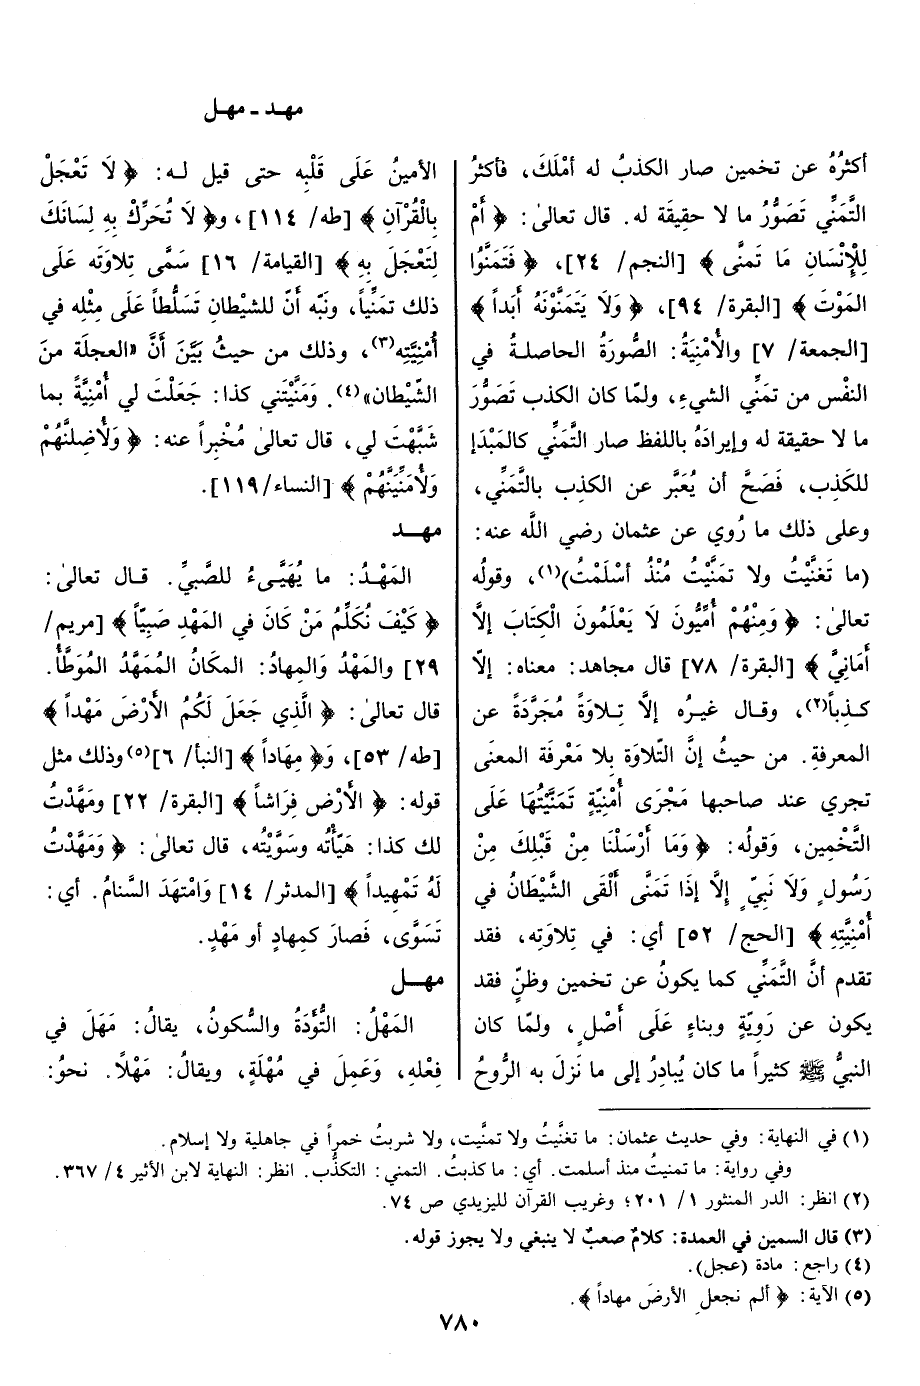 مهد ـ مهل
أكثرُهُ عن تخمين صار الكذبُ له أمْلَكَ، فأكثرُ
التَّمَنِّي تَصَوُّرُ ما لا حقِيقَة له. قال تعالىٰ: ﴿ أَمْ
لِلْإِنْسَانِ مَا تَمنَّى ﴾ [النجم/ ٢٤]، ﴿ فَتَمَنَّوُا
المَوْتَ ﴾ [البقرة/ ٩٤]، ﴿ وَلَا يَتَمَنَّوْنَهُ أَبَداً ﴾
[الجمعة/ ٧] والأُمْنِيَةُ: الصُّورَةُ الحاصلةُ في
النفْس من تمَنِّي الشيءِ، ولمّا كان الكذب تَصَوُّرَ
ما لا حقيقة له وإيرادَهُ باللفظ صار التَّمَنِّي كالمَبْدَإِ
للكَذِبِ، فَصَحَّ أن يُعَبَّر عن الكذِب بالتَّمَنِّي،
وعلى ذلك ما رُوي عن عثمان رضي اللَّه عنه:
(ما تَغَنَّيْتُ ولا تمَنَّيْتُ مُنْذُ أسْلَمْتُ)(١)، وقولُه
تعالىٰ: ﴿ وَمِنْهُمْ أُمِّيُّونَ لَا يَعْلَمُونَ الْكِتَابَ إلَّا
أَمَانِيَّ ﴾ [البقرة/ ٧٨] قال مجاهد: معناه: إلَّا
كذِباً(٢)، وقال غيرُه إلَّا تِلاوَةً مُجَرَّدَةً عن
المعرفةِ. من حيثُ إنَّ التّلاوَة بِلا مَعْرفَة المعنَى
تجري عند صاحبها مَجْرَى أُمْنِيَّةٍ تَمَنَّيْتُهَا عَلَى
التَّخْمِين، وَقولُه: ﴿ وَمَا أَرْسَلْنَا مِنْ قَبْلِكَ مِنْ
رَسُولٍ وَلَا نَبِيٍّ إِلَّا إذَا تَمَنَّى أَلْقَى الشَّيْطَانُ في
أُمْنِيَّتِهِ ﴾ [الحج/ ٥٢] أي: في تِلاوَتِه، فقد
تقدم أنَّ التَّمَنِّي كما يكونُ عن تخمين وظنٍّ فقد
يكون عن رَوِيَّةٍ وبناءٍ عَلَى أَصْلٍ، ولمّا كان
النبيُّ ﷺ كثيراً ما كان يُبادِرُ إلى ما نَزلَ به الرُّوحُ
الأمينُ عَلَى قَلْبِه حتى قيل لـه: ﴿ لَا تَعْجَلْ
بِالْقُرْآنِ ﴾ [طه/ ١١٤]، و﴿ لَا تُحَرِّكْ بِهِ لِسَانَكَ
لِتَعْجَلَ بِهِ ﴾ [القيامة/ ١٦] سَمَّى تِلاوَتَه عَلَى
ذلك تمَنِّياً، ونَبّه أنّ للشيْطانِ تَسَلُّطاً عَلَى مِثْلِه في
أُمْنِيَّتِه(٣)، وذلك من حيثُ بَيَّنَ أَنَّ «العجلَة منَ
الشّيْطان»(٤). وَمَنَّيْتَني كذا: جَعَلْتَ لي أُمْنِيَّةً بما
شَبَّهْتَ لي، قال تعالىٰ مُخْبِراً عنه: ﴿ وَلَأُضِلنَّهُمْ
وَلَأُمَنِّيَنَّهُمْ ﴾ [النساء/ ١١٩].
مهــد
المَهْدُ: ما يُهَيَّىءُ للصَّبيِّ. قـال تعالىٰ:
﴿ كَيْفَ نُكَلِّمُ مَنْ كَانَ في المَهْدِ صَبِيّاً ﴾ [مريم/
٢٩] والمَهْدُ وَالمِهادُ: المكَانُ المُمَهَّدُ المُوَطَّأُ.
قال تعالىٰ: ﴿ الَّذِي جَعَلَ لَكُمُ الأَرْضَ مَهْداً ﴾
[طه/ ٥٣]، وَ﴿ مِهَاداً ﴾ [النبأ/ ٦](٥) وذلك مثل
قوله: ﴿ الأَرْضِ فِرَاشاً ﴾ [البقرة/ ٢٢] ومَهَّدْتُ
لك كذا: هَيَّأْتُه وَسَوَّيْتُه، قال تعالىٰ: ﴿ وَمَهَّدْتُ
لَهُ تَمْهِيداً ﴾ [المدثر/ ١٤] وَامْتَهَدَ السَّنامُ. أي:
تَسَوَّى، فَصارَ كمِهادٍ أو مَهْدٍ.
مهــل
المَهْلُ: التُّؤَدَةُ والسُّكونُ، يقالُ: مَهَلَ في
فِعْلهِ، وَعَمِلَ في مُهْلَةٍ، ويقالُ: مَهْلًا. نحوُ:
(١) في النهاية: وفي حديث عثمان: ما تغنَّيتُ ولا تمنَّيت، ولا شربتُ خمراً في جاهلية ولا إسلام.
وفي رواية: ما تمنيتُ منذ أسلمت. أي: ما كذبتُ. التمني: التكذُّب. انظر: النهاية لابن الأثير ٤/ ٣٦٧.
(٢) انظر: الدر المنثور ١/ ٢٠١؛ وغريب القرآن لليزيدي ص ٧٤.
(٣) قال السمين في العمدة: كلامٌ صعبٌ لا ينبغي ولا يجوز قوله.
(٤) راجع: مادة (عجل).
(٥) الآية: ﴿ ألم نجعلِ الأرضَ مهاداً ﴾.
٧٨٠